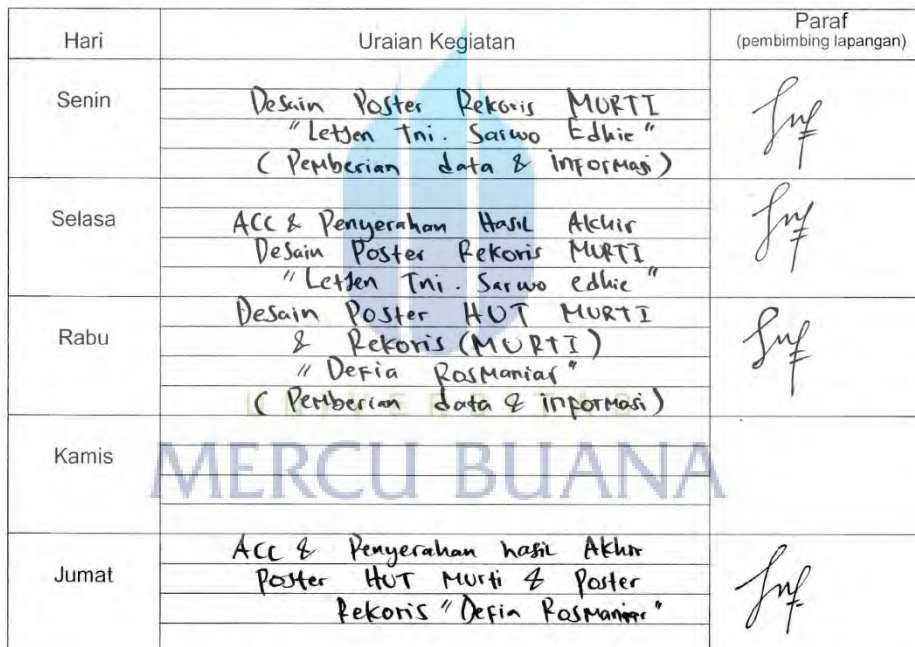 Hari
Uraian Kegiatan
Paraf
(pembimbing lapangan)
Senin
Desain Poster Rekoris MURTI
"Letjen Tni. Sarwo Edhie"
( Pemberian data & informasi )
Selasa
ACC & Penyerahan Hasil Akhir
Desain Poster Rekoris MURTI
"Letjen Tni. Sarwo edhie"
Rabu
Desain Poster HUT MURTI
& Rekoris (MURTI)
"Defia Rosmaniar"
( Pemberian data & informasi )
UNIVERSITAS
MERCU BUANA
Kamis
Jumat
Acc & Penyerahan hasil Akhir
Poster HUT Murti & Poster
Rekoris "Defia Rosmaniar"